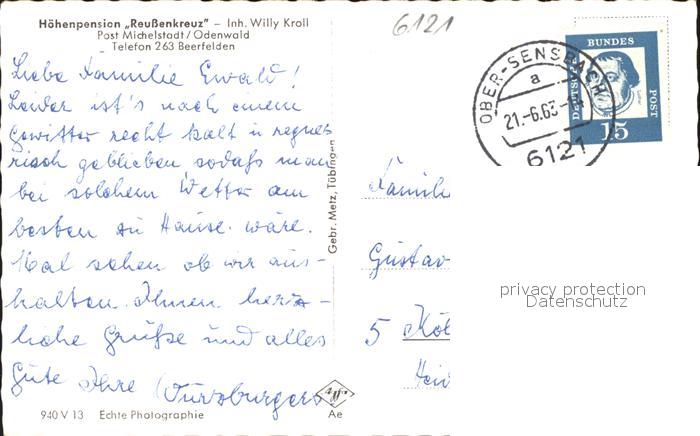 Höhenpension „Reußenkreuz" – Inh. Willy Kroll
Post Michelstadt/Odenwald
Telefon 263 Beerfelden
6121
Liebe Familie Ewald!
Leider ist's nach einem
Gewitter recht kalt u regne-
risch geblieben sodaß man
bei solchem Wetter am
besten zu Hause wäre.
Mal sehen ob wir aus-
halten. Ihnen herz-
liche Grüße und alles
Gute Ihre Würzburgers
940 V 13 Echte Photographie
Gebr. Metz, Tübingen
Agfa
Ae
OBER-SENSBACH
a
21.-6.63.-
6121
DEUTSCHE
BUNDES
POST
15
Famili
Gustav
5 Köl
privacy protection
Datenschutz